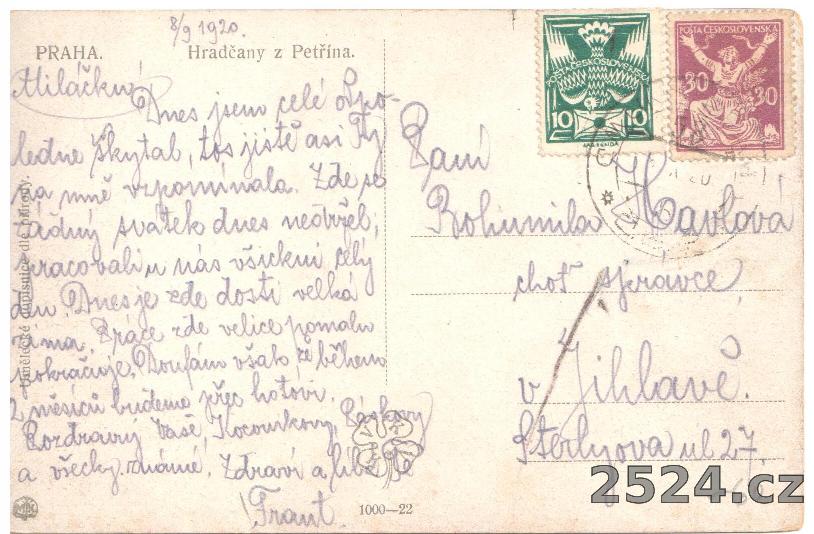 8/9 1920.
PRAHA. Hradčany z Petřína.
Miláčku!
Dnes jsem celé odpo-
ledne škytal, tos jistě asi Ty
na mně vzpomínala. Zde se
žádný svátek dnes
pracovali u nás všickni celý
den. Dnes je zde dosti velká
zima. Práce zde velice pomalu
pokračuje. Doufám však, že během
2 měsíců budeme přec hotovi.
Pozdravuj
a všecky známé. Zdraví a líbá Tě
Frant.
Umělecké dopisnice dle přírody.
1000—22
POŠTA ČESKOSLOVENSKÁ
10 10
POŠTA ČESKOSLOVENSKÁ
30 30
Paní
Bohumila Havlová
choť správce,
v Jihlavě.
ul 27.
2524.cz